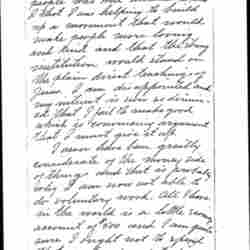 people was
I that I was helping to build
up a movement that would
make people more loving
and kind and that the
institution would stand on
the plain direct teachings of
Jesus. I am disappointed and
my interest is now so
that I fail to make good
what is
that I must give it up.
I never have been greatly
considerate of the money side
of things and that is probably
why I am now not able to
do voluntary work. All I have
in the world is a little
account of 500 and I am quite
sure I ought not to spend